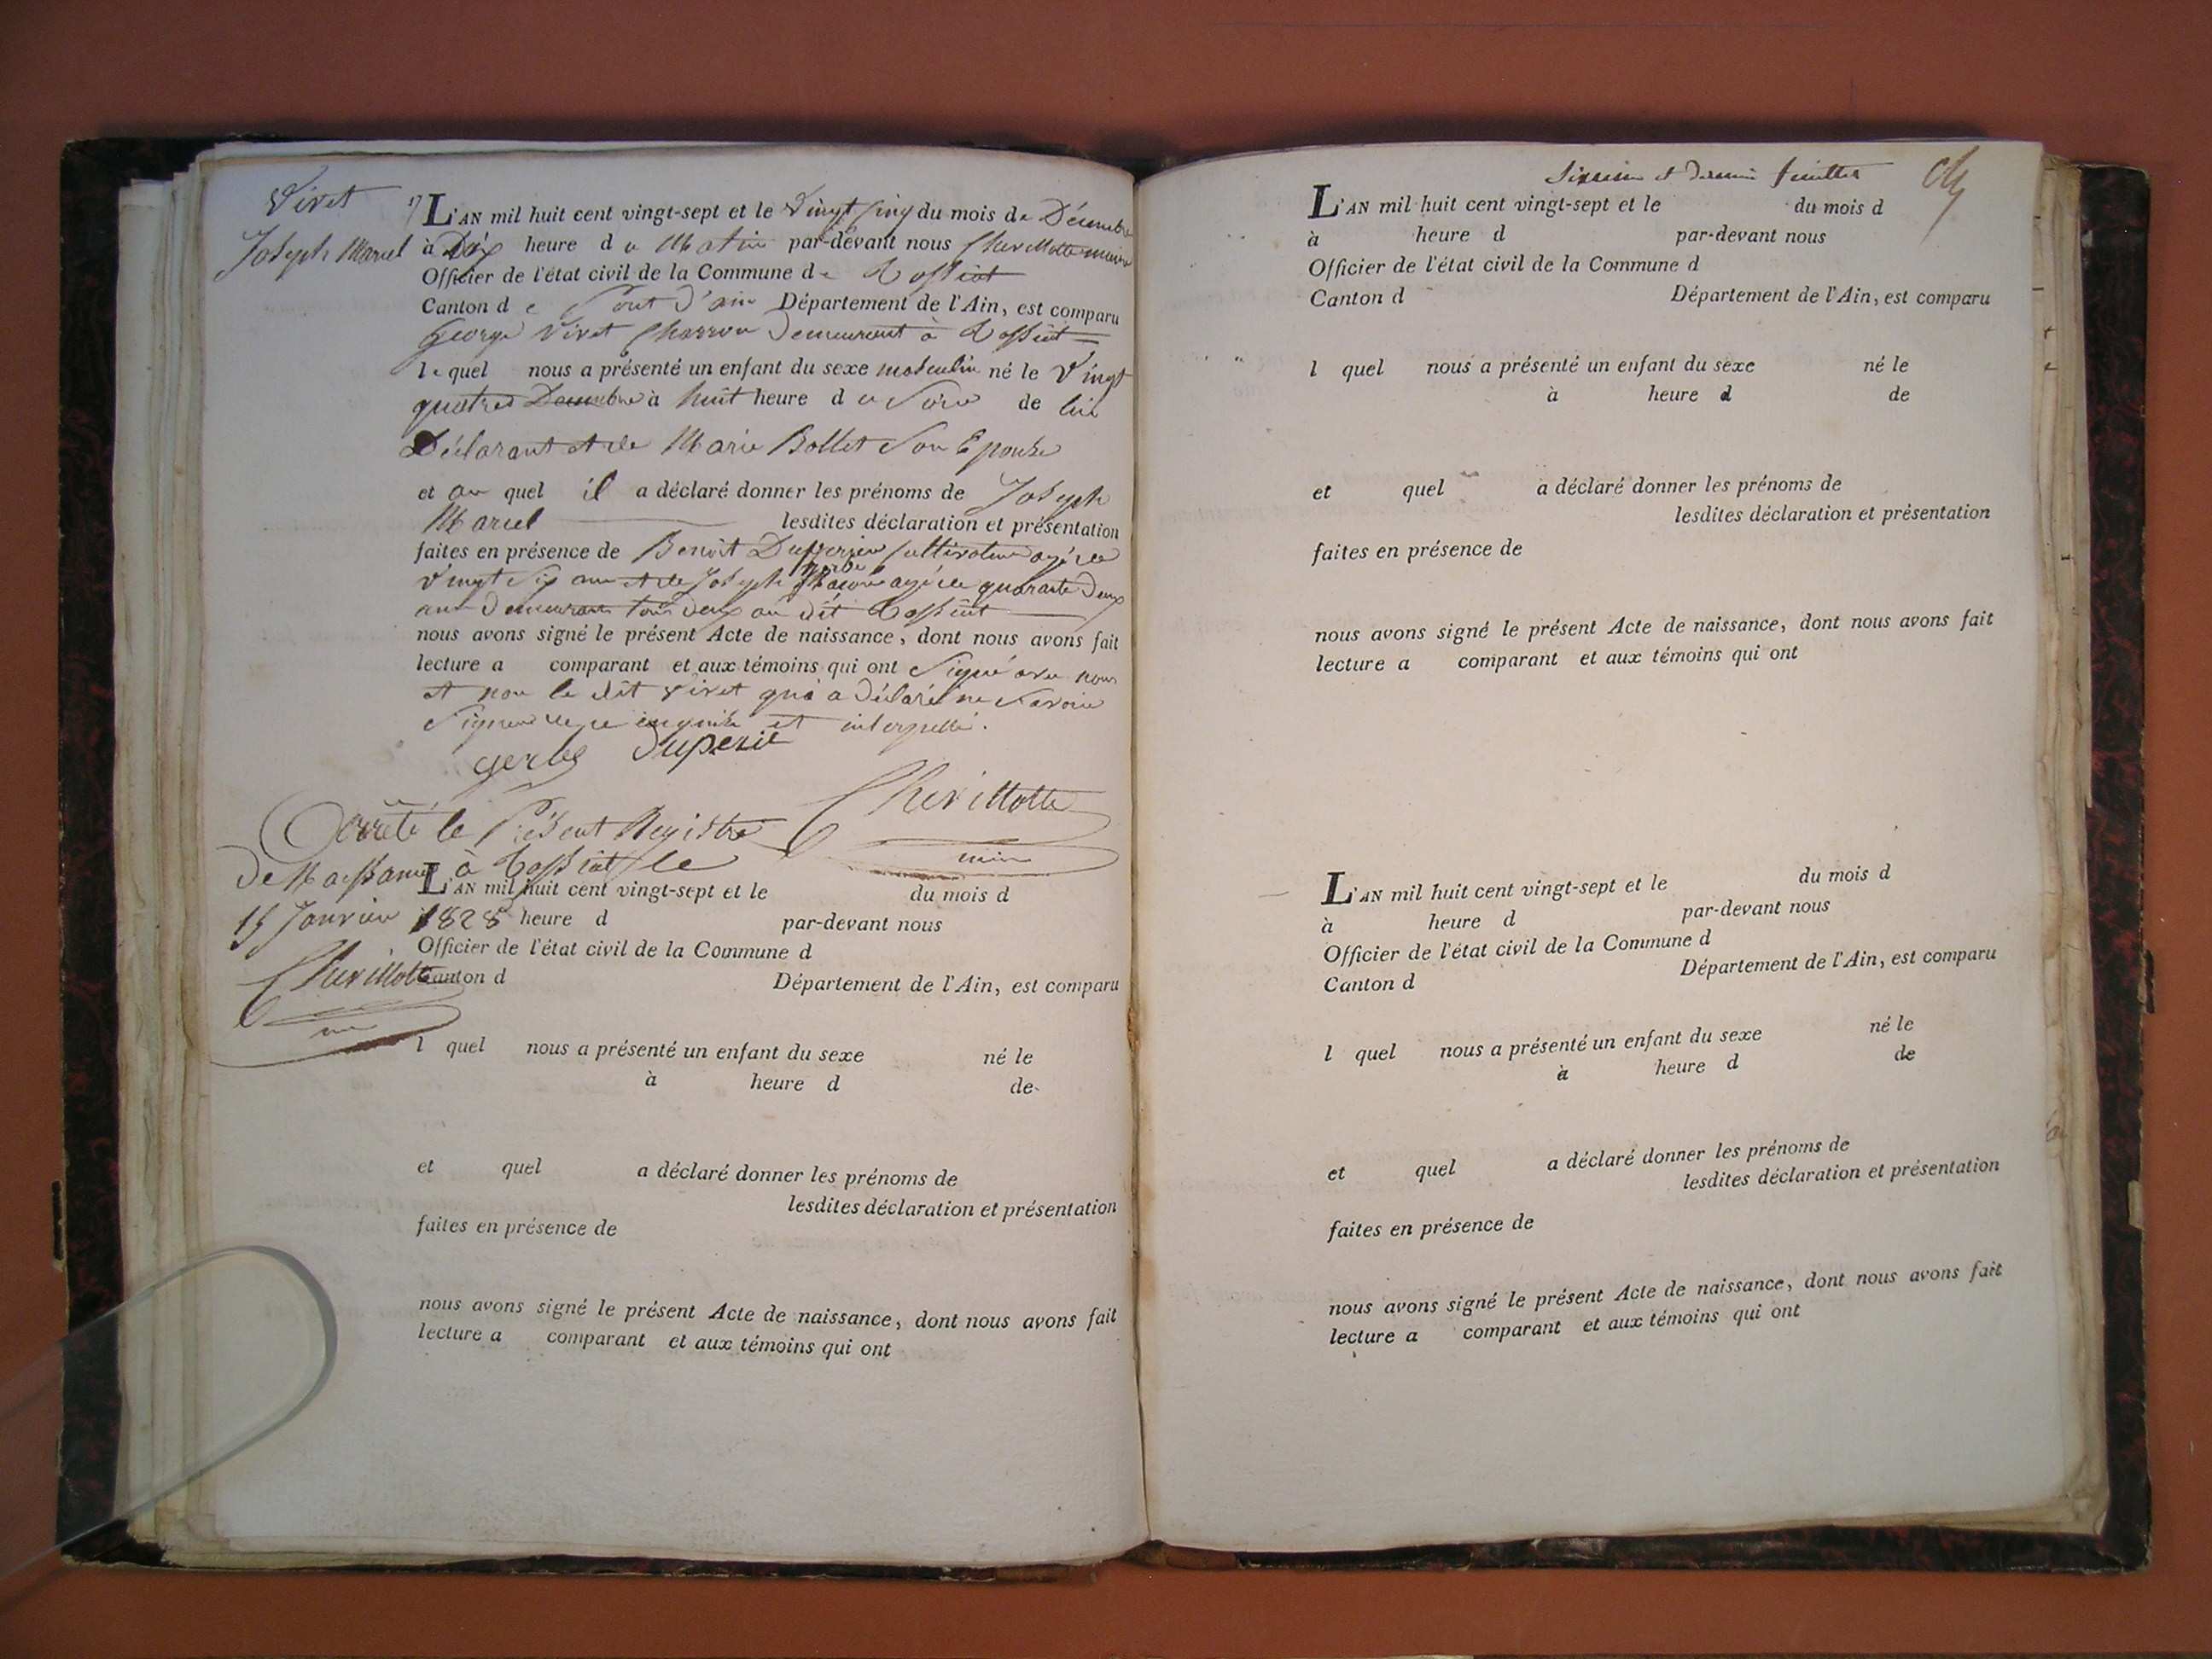 Vivet
Joseph Marcel
17 L'AN mil huit cent vingt-sept et le Vingt cinq du mois de Décembre
à Dix heure du Matin par-devant nous Chevillotte maire
Officier de l'état civil de la Commune de Tossiat
Canton de Pont d'ain Département de l'Ain, est comparu
George Vivet Charron demeurant à Tossiat
lequel nous a présenté un enfant du sexe masculin né le Vingt
quatres Decembre à huit heure du Soir de lui
Déclarant et de Marie Bollet Son Epouse
et au quel il a déclaré donner les prénoms de Joseph
Marcel lesdites déclaration et présentation
faites en présence de Benoit Dupperier cultivateur agé de
Vingt Six ans et de Joseph gerbe Macon agé de quarante Deux
ans Demeurants tous deux au dit Tossiat
nous avons signé le présent Acte de naissance, dont nous avons fait
lecture a comparant et aux témoins qui ont Signé avec nous
et non le dit Vivet qui a Déclaré ne Savoir
Signer de ce enquis et interpellé.
gerbe Duperié
Chevillotte
maire
Arrêté le Présent Registre
De Naissance à Tossiat le
15 Janvier 1828
Chevillotte
L'AN mil huit cent vingt-sept et le du mois d
heure d par-devant nous
Officier de l'état civil de la Commune d
Canton d Département de l'Ain, est comparu
l quel nous a présenté un enfant du sexe né le
à heure d de
et quel a déclaré donner les prénoms de
lesdites déclaration et présentation
faites en présence de
nous avons signé le présent Acte de naissance, dont nous avons fait
lecture a comparant et aux témoins qui ont
Sixième et dernier feuillet
L'AN mil huit cent vingt-sept et le du mois d
à heure d par-devant nous
Officier de l'état civil de la Commune d
Canton d Département de l'Ain, est comparu
l quel nous a présenté un enfant du sexe né le
à heure d de
et quel a déclaré donner les prénoms de
lesdites déclaration et présentation
faites en présence de
nous avons signé le présent Acte de naissance, dont nous avons fait
lecture a comparant et aux témoins qui ont
L'AN mil huit cent vingt-sept et le du mois d
à heure d par-devant nous
Officier de l'état civil de la Commune d
Canton d Département de l'Ain, est comparu
l quel nous a présenté un enfant du sexe né le
à heure d de
et quel a déclaré donner les prénoms de
lesdites déclaration et présentation
faites en présence de
nous avons signé le présent Acte de naissance, dont nous avons fait
lecture a comparant et aux témoins qui ont